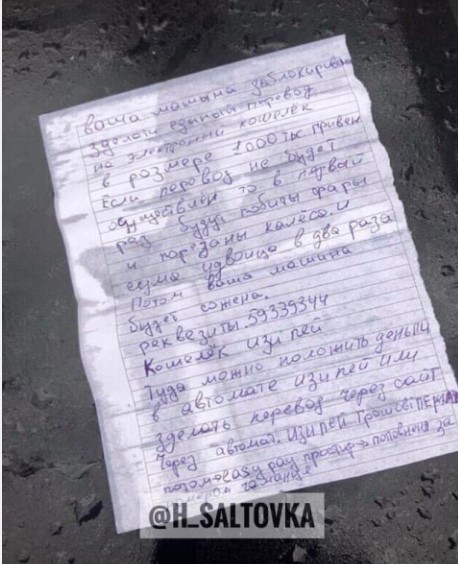 ваша машына заблокирована
зделай единый перевод
на электроний кошелёк
в розмере 1000 тыс гривен
Если перевод не будет
осуществлён то в первый
раз будут побиты фары
и порезаны колёсо. и
сума удвоица в два раза
Потом ваша машина
будет сожена.
раквезиты. 59339344
Кошелёк изипей
Туда можно положить деньги
в автомате изипей или
зделать перевод через сайт
Через автомат. Изипей Грошові перекази
потом easy pay поповнення за
номером гаманця
@H_SALTOVKA